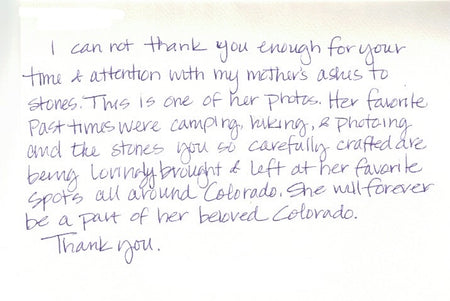 I can not thank you enough for your
time & attention with my mother's ashes to
stones. This is one of her photos. Her favorite
Past times were camping, hiking, & photoing
and the stones you so carefully crafted are
being lovingly brought & left at her favorite
spots all around Colorado. She will forever
be a part of her beloved Colorado.
Thank you.